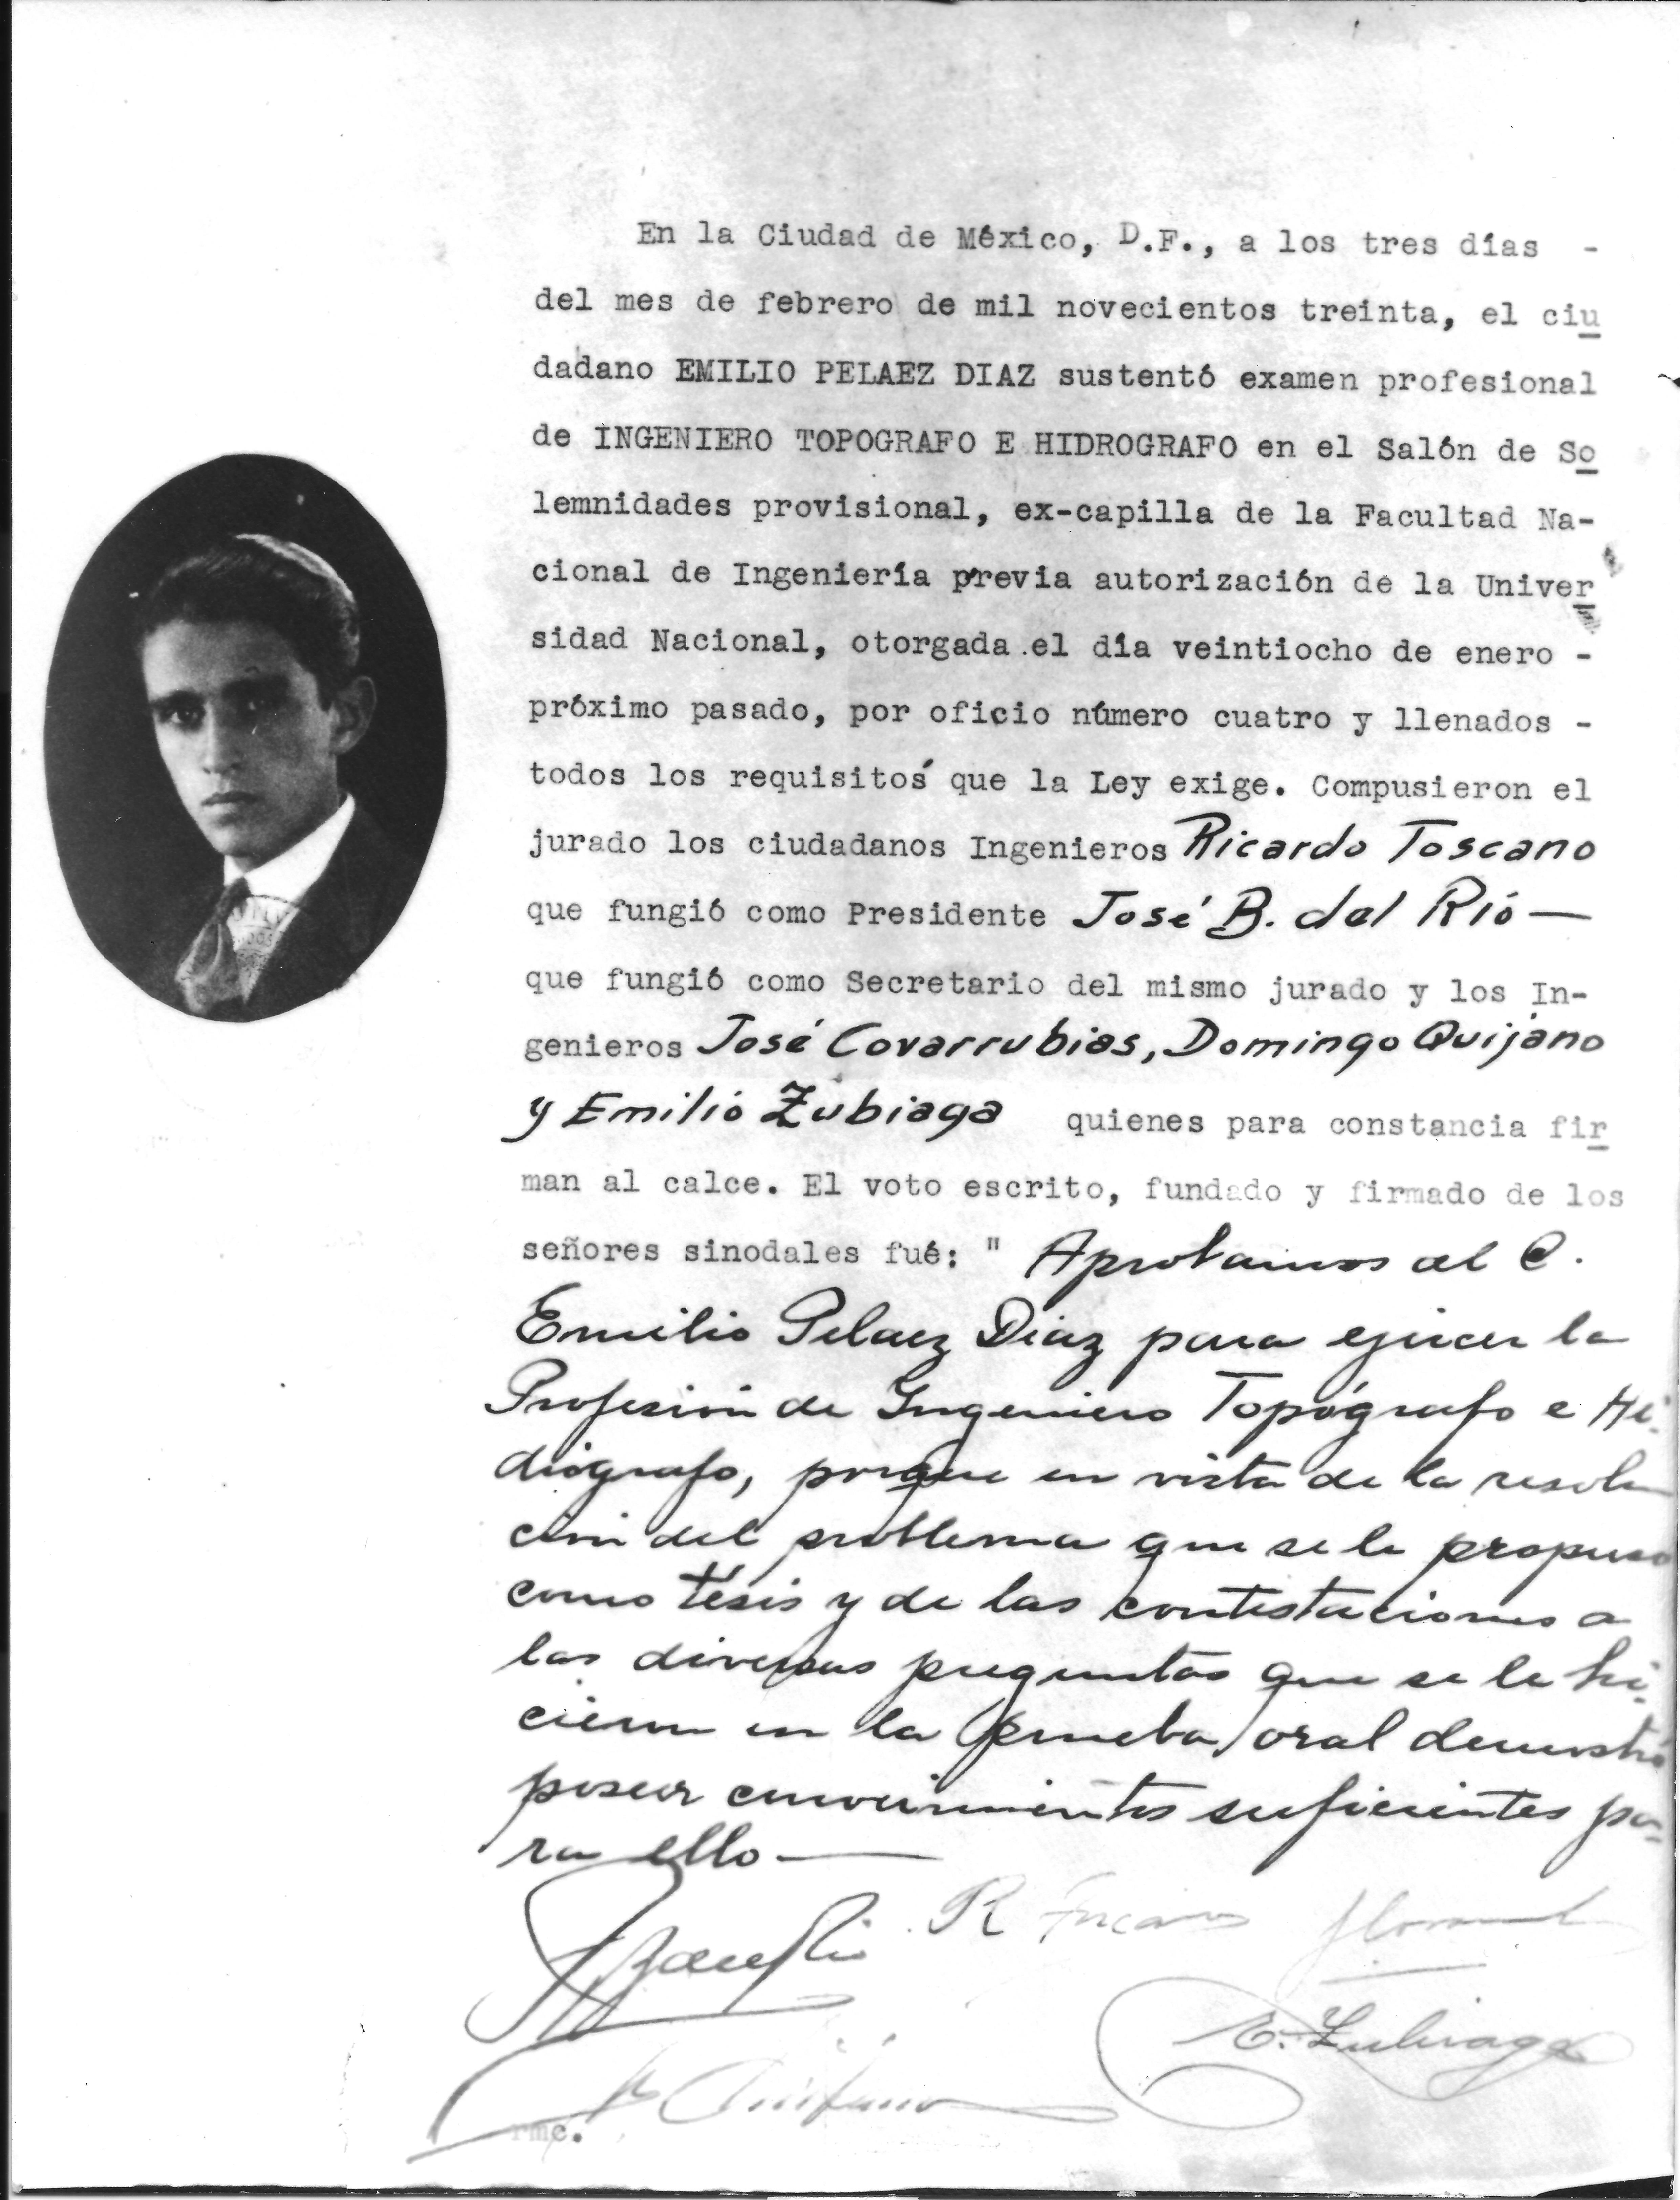 En la Ciudad de México, D.F., a los tres días -
del mes de febrero de mil novecientos treinta, el ciu
dadano EMILIO PELAEZ DIAZ sustentó examen profesional
de INGENIERO TOPOGRAFO E HIDROGRAFO en el Salón de So
lemnidades provisional, ex-capilla de la Facultad Na-
cional de Ingeniería previa autorización de la Univer
sidad Nacional, otorgada el día veintiocho de enero -
próximo pasado, por oficio número cuatro y llenados -
todos los requisitos que la Ley exige. Compusieron el
jurado los ciudadanos Ingenieros Ricardo Toscano
que fungió como Presidente José B. del Rió —
que fungió como Secretario del mismo jurado y los In-
genieros José Covarrubias, Domingo Quijano
y Emilió Zubiaga quienes para constancia fir
man al calce. El voto escrito, fundado y firmado de los
señores sinodales fué: " Aprobamos al C.
Emilio Pelaez Diaz para ejercer la
Profesión de Ingeniero Topógrafo e Hi-
drógrafo, porque en vista de la resolu
ción del problema que se le propuso
como tésis y de las contestaciones a
las diversas preguntas que se le hi-
cieron en la prueba oral demostró
poseer conocimientos suficientes pa-
ra ello —
R Toscano
E. Zubiaga
rmc.